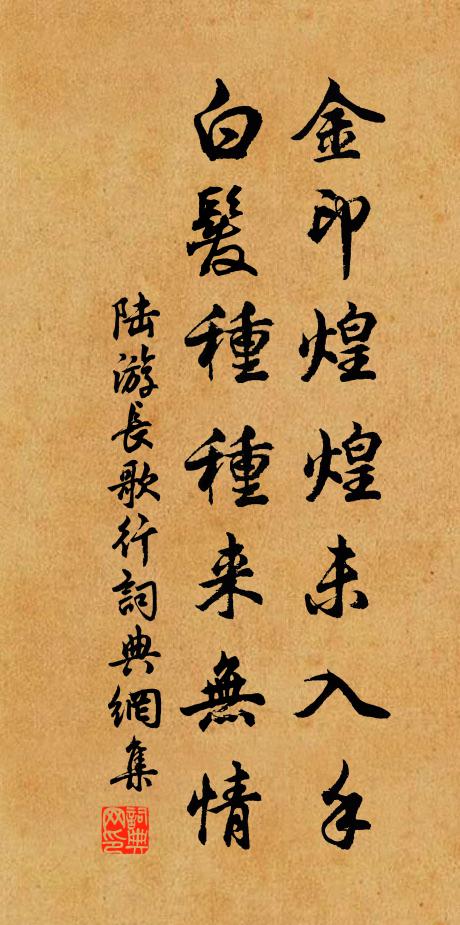 金印煌煌未入手
白髮種種来無情
陆游長歌行詞典網集
詞典网印